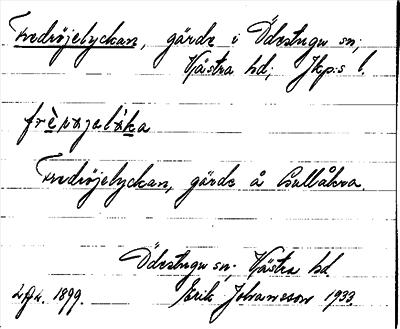 Fredröjelyckan, gärde i Ödestugu sn,
Västra hd, Jkp:s l.
Fredröjelyckan, gärde å Gullåkra.
Ödestugu sn. Västra hd
1899. Erik Johansson 1933.